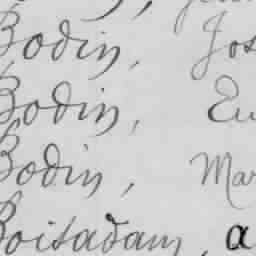 Bodin, Jos
Bodin, Eu
Bodin, Mar
Boisadam, a